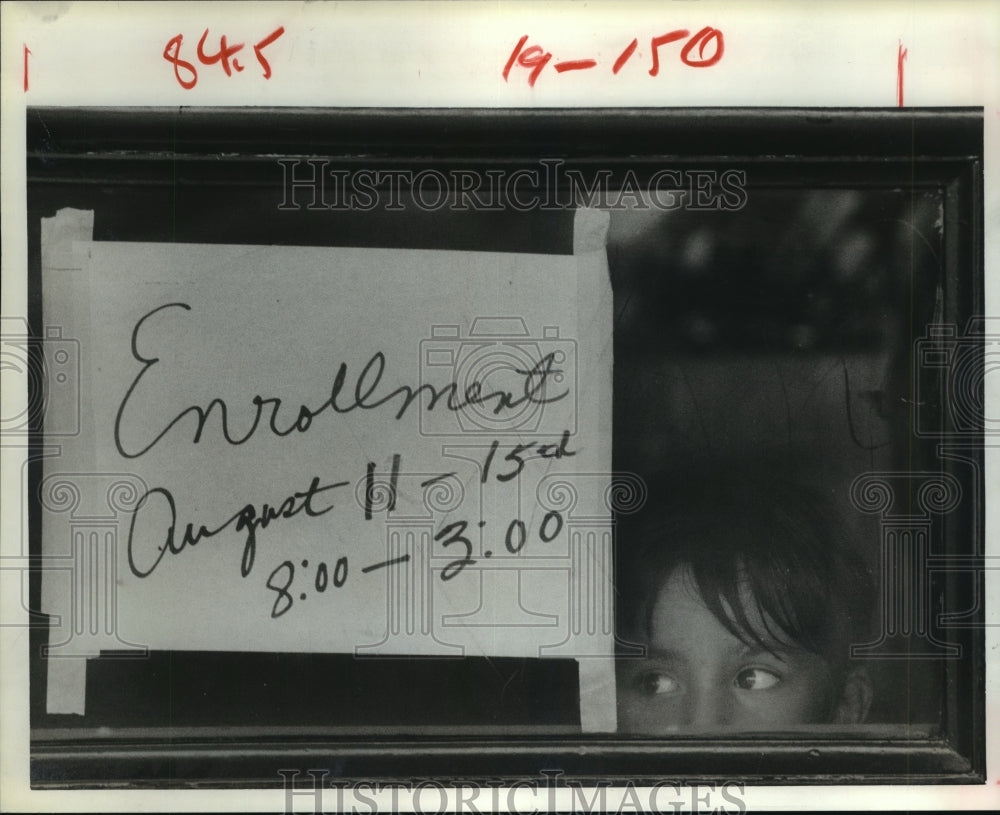 84.5 19-150
HISTORIC IMAGES
Enrollment
August 11 - 15th
8:00 - 3:00
HISTORIC IMAGES